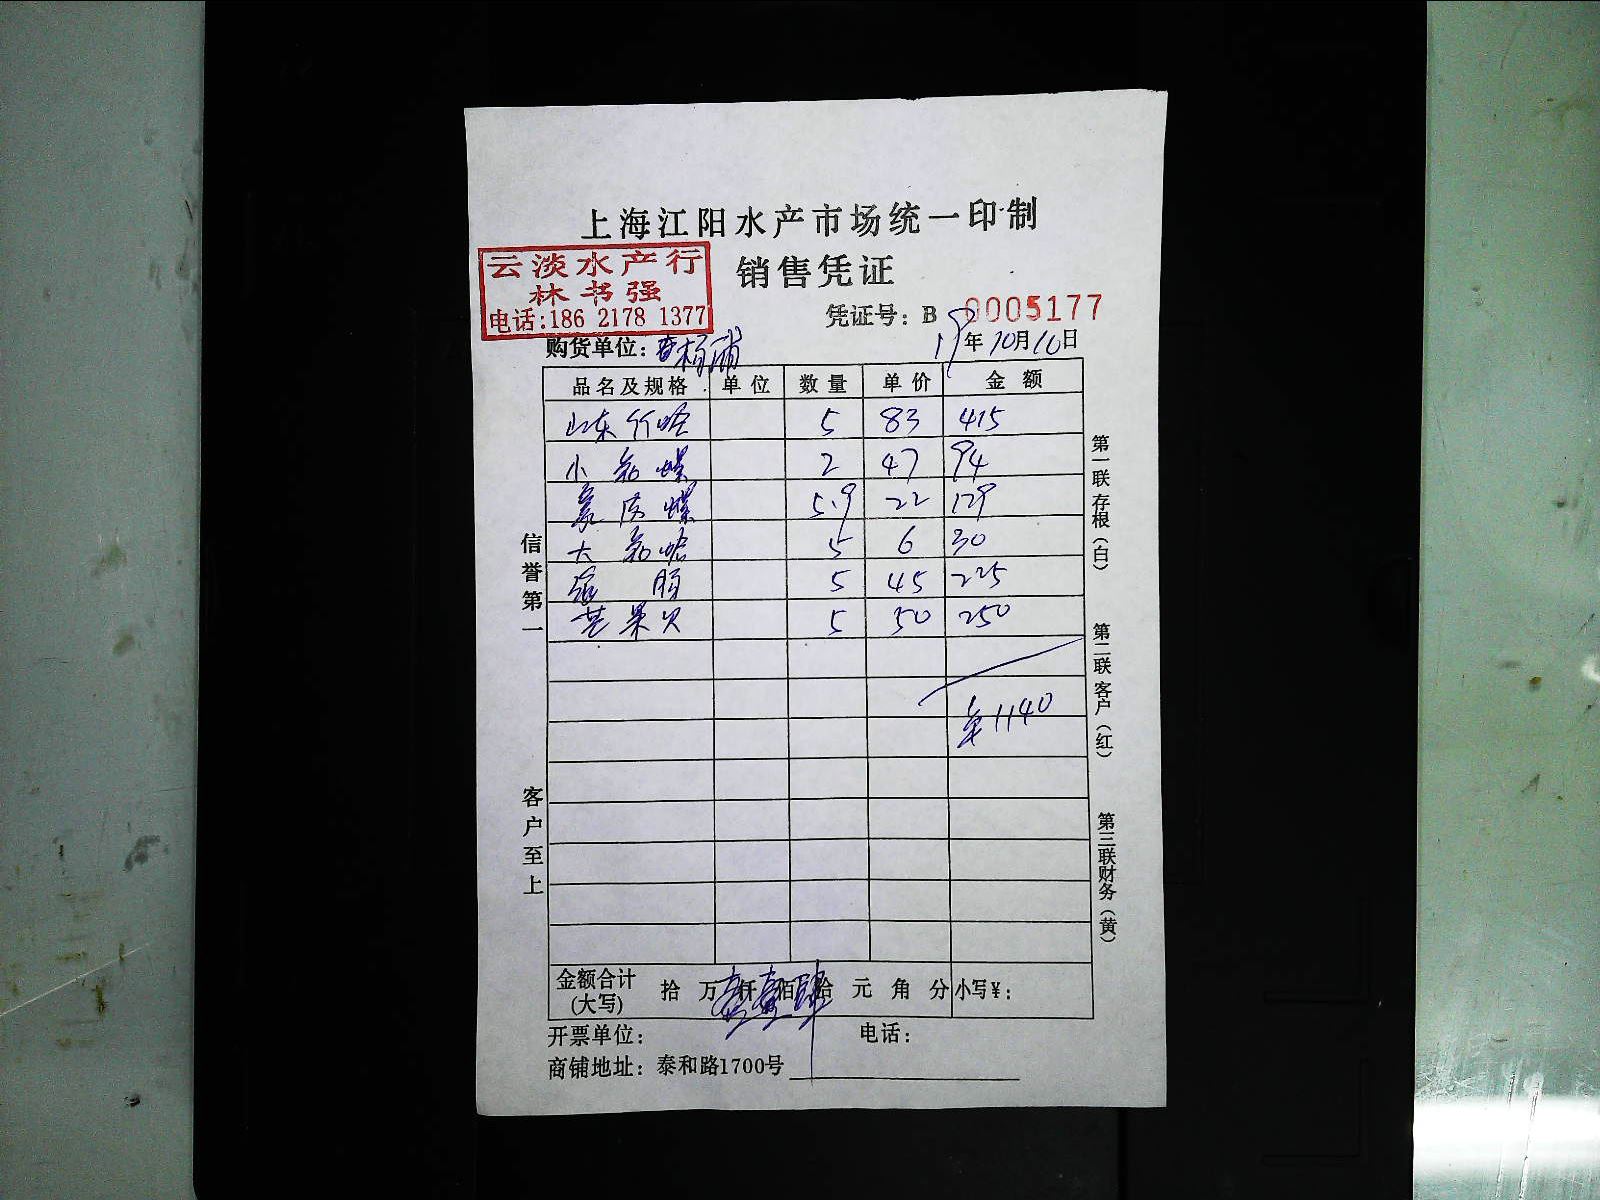 上海江阳水产市场统一印制
云淡水产行
林书强
电话:186 2178 1377
销售凭证
凭证号: B 0005177
购货单位: 杨浦
19年10月16日
品名及规格 单位 数量 单价 金额
山东竹蛏 5 83 415
小 螺 2 47 94
螺 5.9 22 129
大 蛤 5 6 30
5 45 225
芒果贝 5 50 250
1140
信誉第一
客户至上
第一联存根(白)
第二联客户(红)
第三联财务(黄)
金额合计(大写) 拾 万壹仟壹佰肆拾 元 角 分 小写¥:
开票单位: 电话:
商铺地址: 泰和路1700号